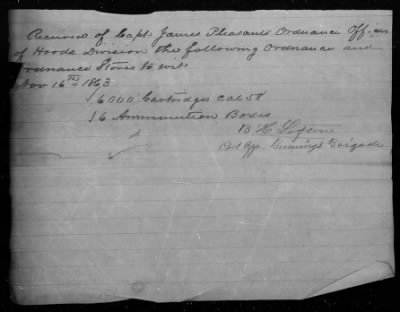 Received of Capt. James Pleasants Ordnance Officer
of Hoods Division the following Ordnance and
Ordnance Stores to wit
Nov 16th 1863
16000 Cartridges Cal 58
16 Ammunition Boxes
B. H.
Ord Off. Benning's Brigade